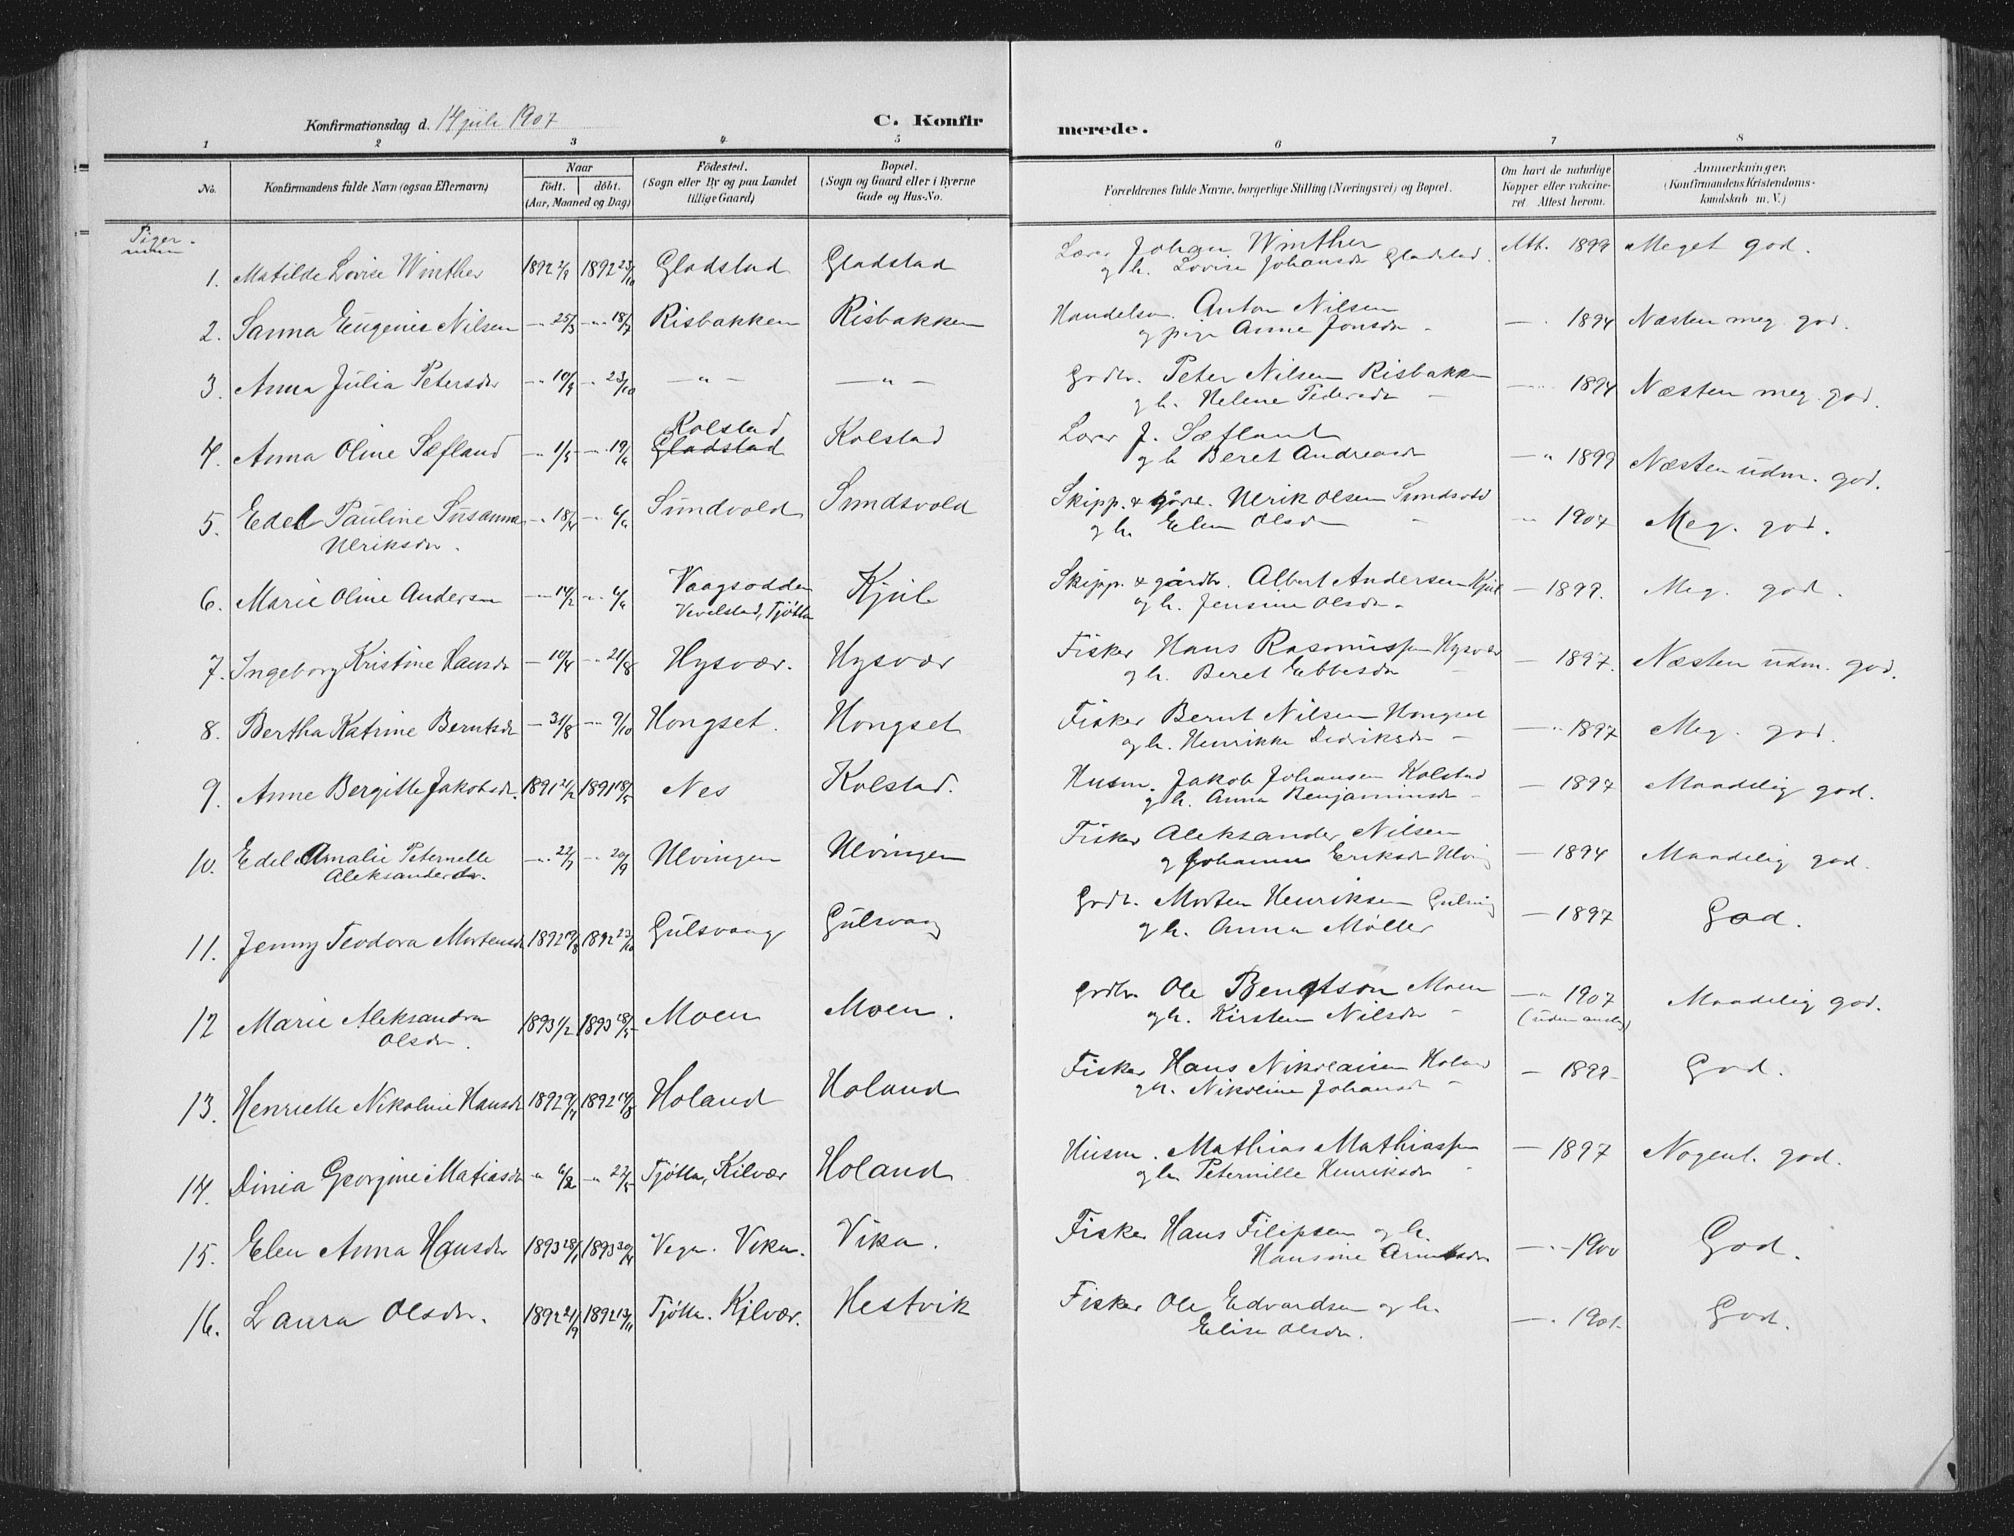 Konfirmationsdag d. 14 juli 1907 C. Konfirmerede.
1 2 3 4 5 6 7 8
No. Konfirmandens fulde Navn (ogsaa Efternavn) Naar födt. döbt. (Aar, Maaned og Dag) Födested. (Sogn eller By og paa Landet tillige Gaard) Bopæl. (Sogn og Gaard eller i Byerne Gade og Hus-No. Forældrenes fulde Navne, borgerlige Stilling (Næringsvei) og Bopæl. Om havt de naturlige Kopper eller vaccineret. Attest herom. Anmærkninger. (Konfirmandens Kristendomskundskab m. V.)
Piger
1. Matilde Lovise Winther 1892 2/9 1892 23/10 Gladstad Gladstad Lærer Johan Winther Att. 1899 Meget god.
og h. Lovise Johansdr Gladstad.
2. Sanna Eugenie Nilsen — 25/3 — 18/7 Risbakken Risbakken Handelsm. Anton Nilsen — 1894 Næsten meg. god.
og pige Anne Jonsdr —
3. Anna Julia Petersdr — 10/9 — 23/10 — " — — " — Grdbr. Peter Nilsen Risbakken — 1894 Næsten meg. god.
og h. Helene Pedersdr —
4. Anna Oline Sæfland — 1/3 — 19/6 Kolstad Gladstad Kolstad Lærer J. Sæfland — 1899 Næsten udm. god.
og h Beret Andreasdr
5. Edel Pauline Susanna — 18/4 — 6/6 Sundvold Sundsvold Skipp. & gårdbr. Ulrik Olsen Sundsvold " 1907 Meg. god.
Ulriksdr. og h. Elen Olsdr —
6. Marie Oline Andersen — 14/2 — 6/6 Vaagsodden Kjul Skipp. & gårdbr. Albert Andersen Kjul — 1899. Meg. god.
Vevelstad, Tjötta og h. Jensine Olsdr.
7. Ingeborg Kristine Hansdr — 10/4 — 21/8 Hysvær. Hysvær Fisker Hans Rasmussen Hysvær — 1897. Næsten udm. god.
og h. Beret Ebbesdr —
8. Bertha Katrine Berntsdr — 31/8 — 9/10 Hongset. Hongset Fisker Bernt Nilsen Hongset — 1897 Meg. god.
og h. Henrikke Dedriksdr —
9. Anne Bergitte Jakobsdr. 1891 21/2 1891 18/5 Nes Kolstad. Husm. Jakob Johansen Kolstad — 1897 Maadelig god.
og h. Anna Benjaminsdr —
10. Edel Amalie Peternelle — 22/7 — 20/9 Ulvingen Ulvingen Fisker Aleksander Nilsen — 1894 Maadelig god.
Aleksandersdr. og Johanna Eriksdr Ulving
11. Jenny Teodora Mortensdr 1892 19/8 1892 23/10 Gulsvaag Gulsvaag Grdb. Morten Henriksen — 1897 God.
og h. Anna Møller
12 Marie Aleksandra 1893 1/2 1893 28/5 Moen Moen. Grdbr. Ole Bengtson Moen — " 1907 Maadelig god.
Olsdr. og h. Kirsten Nilsdr —
13. Henriette Nikoline Hansdr 1892 9/7 1892 14/8 Holand Holand Fisker Hans Nikolaisen Holand — 1899 God.
og h. Nikoline Johansdr —
14. Dinia Georgine Matiasdr " 6/2 — " 22/5 Tjötta, Kilvær Holand Husm. Mathias Mathiassen — 1897 Nogenl. god.
og h. Peternille Henriksdr
15. Elen Anna Hansdr 1893 28/1 1893 30/4 Vega. Vika. Vika. Fisker Hans Filipsen og h. — 1900 God.
Hansine Arntsdr
16. Laura Olsdr. 1892 21/9 1892 13/11 Tjötta. Kilvær. Hestvik Fisker Ole Edvardsen og h. — 1901 God.
Elise Olsdr.